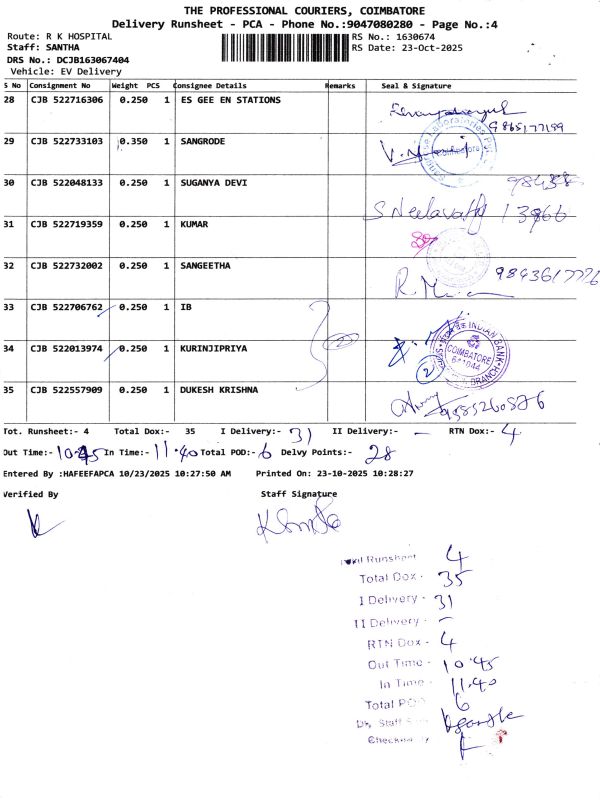 THE PROFESSIONAL COURIERS, COIMBATORE
Delivery Runsheet - PCA - Phone No.:9047080280 - Page No.:4
Route: R K HOSPITAL
Staff: SANTHA
DRS No.: DCJB163067404
Vehicle: EV Delivery
RS No.: 1630674
RS Date: 23-Oct-2025
S No Consignment No Weight PCS Consignee Details Remarks Seal & Signature
28 CJB 522716306 0.250 1 ES GEE EN STATIONS
9865177199
29 CJB 522733103 0.350 1 SANGRODE
Coimbatore
30 CJB 522048133 0.250 1 SUGANYA DEVI
98438
S Neelavathy 13966
31 CJB 522719359 0.250 1 KUMAR
32 CJB 522732002 0.250 1 SANGEETHA
9843617726
33 CJB 522706762 0.250 1 IB
2
34 CJB 522013974 0.250 1 KURINJIPRIYA
2
INDIAN BANK
COIMBATORE
641044
BRANCH
35 CJB 522557909 0.250 1 DUKESH KRISHNA
9585260876
Tot. Runsheet:- 4 Total Dox:- 35 I Delivery:- 31 II Delivery:- - RTN Dox:- 4
Out Time:- 10.45 In Time:- 11.40 Total POD:- 6 Delvy Points:- 28
Entered By :HAFEEFAPCA 10/23/2025 10:27:50 AM Printed On: 23-10-2025 10:28:27
Verified By Staff Signature
Runsheet 4
Total Dox - 35
I Delivery - 31
II Delivery - -
RTN Dox - 4
Out Time - 10.45
In Time - 11.40
Total POD 6
Staff
Checked